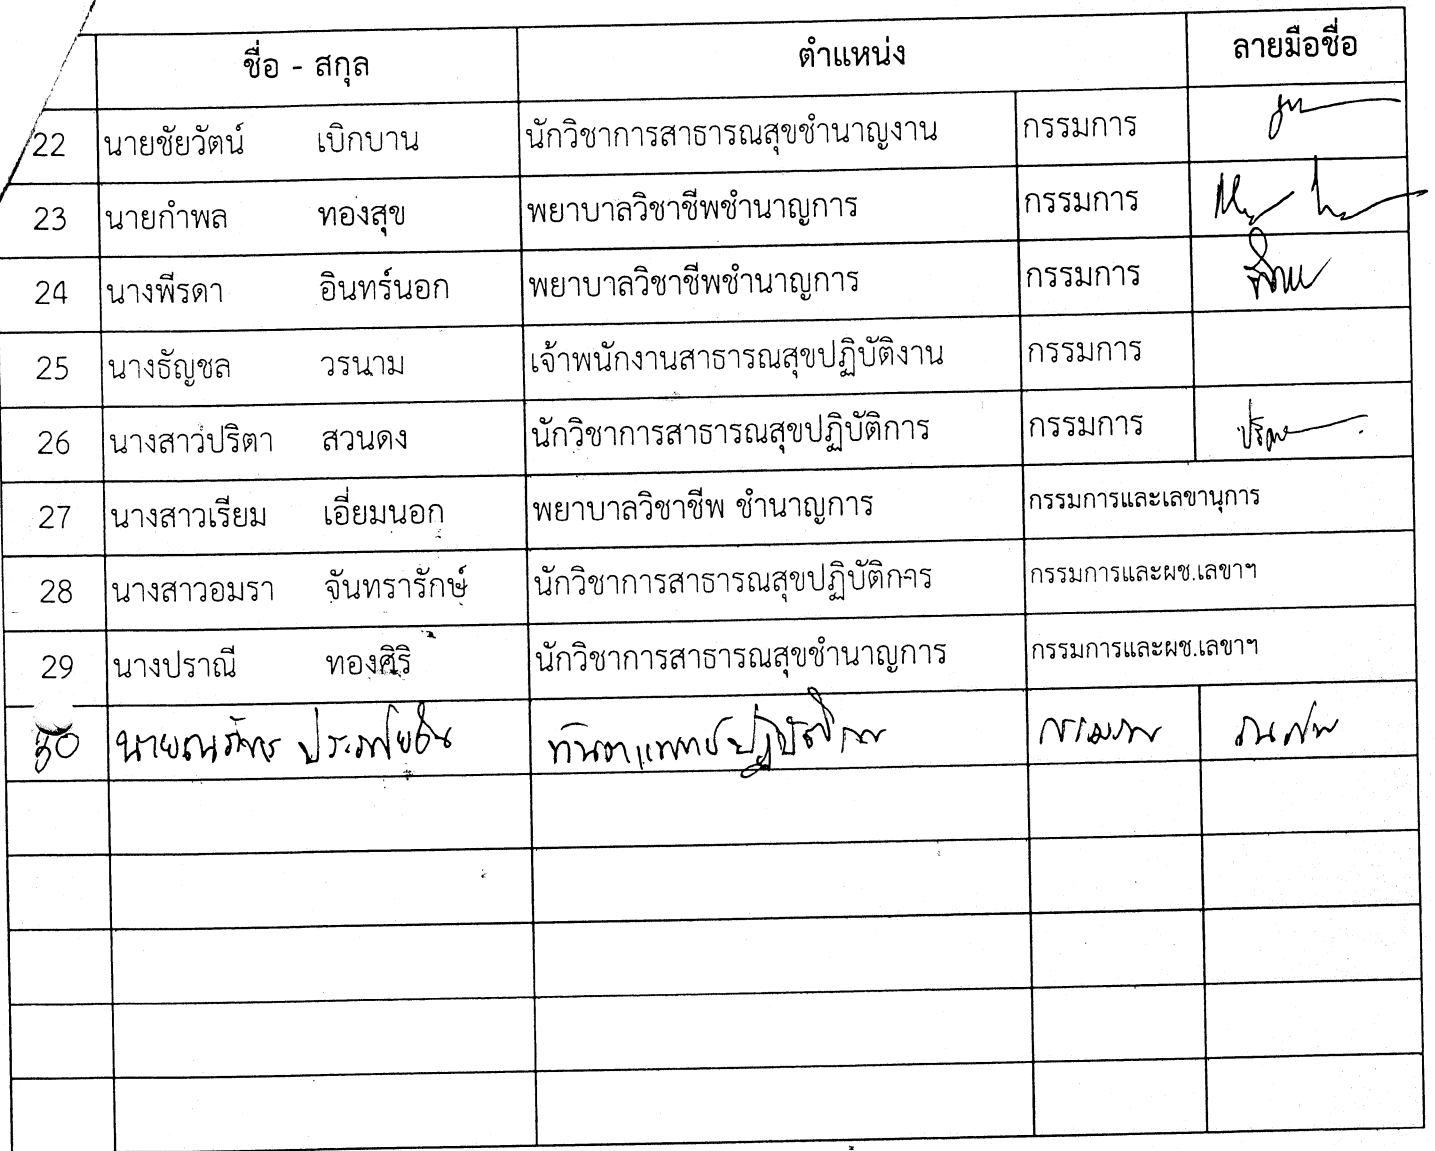 ชื่อ - สกุล ตำแหน่ง ลายมือชื่อ
22 นายชัยวัตน์ เบิกบาน นักวิชาการสาธารณสุขชำนาญงาน กรรมการ
23 นายกำพล ทองสุข พยาบาลวิชาชีพชำนาญการ กรรมการ
24 นางพีรดา อินทร์นอก พยาบาลวิชาชีพชำนาญการ กรรมการ
25 นางธัญชล วรนาม เจ้าพนักงานสาธารณสุขปฏิบัติงาน กรรมการ
26 นางสาวปริตา สวนดง นักวิชาการสาธารณสุขปฏิบัติการ กรรมการ
27 นางสาวเรียม เอี่ยมนอก พยาบาลวิชาชีพ ชำนาญการ กรรมการและเลขานุการ
28 นางสาวอมรา จันทรารักษ์ นักวิชาการสาธารณสุขปฏิบัติการ กรรมการและผช.เลขาฯ
29 นางปราณี ทองศิริ นักวิชาการสาธารณสุขชำนาญการ กรรมการและผช.เลขาฯ
30 ทันตแพทย์ปฏิบัติการ กรรมการ